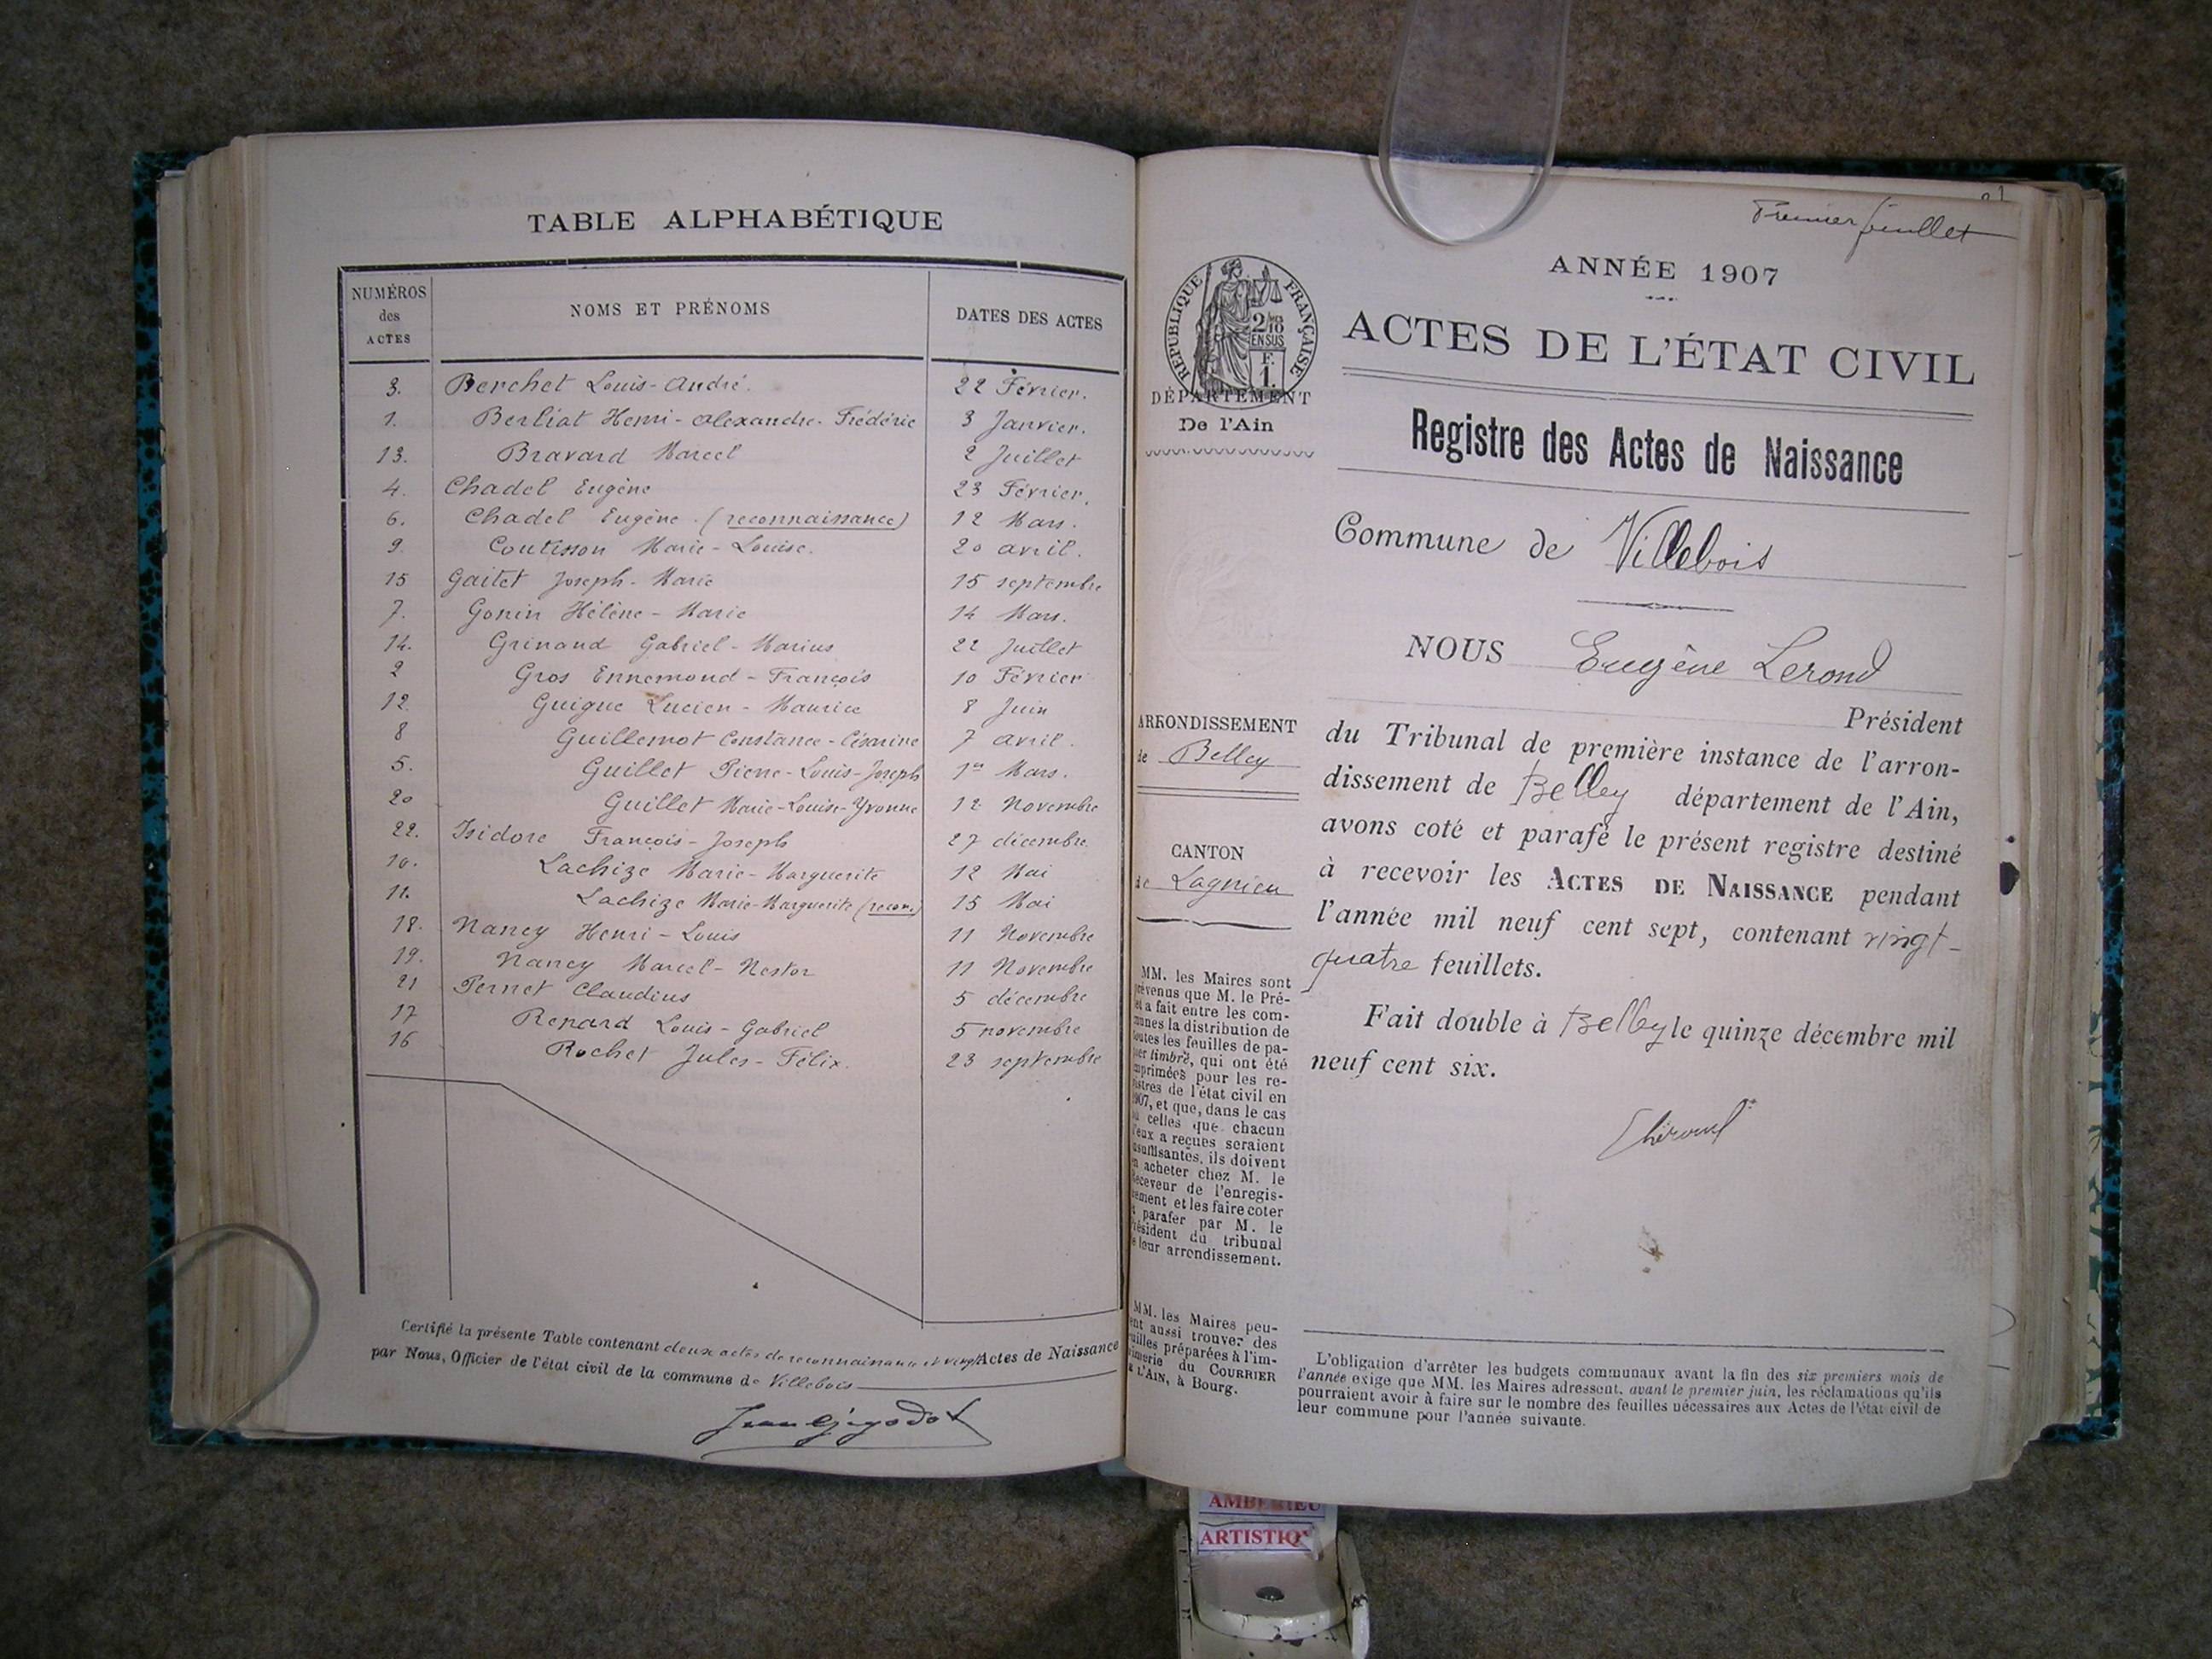 TABLE ALPHABÉTIQUE
NUMÉROS des ACTES
NOMS ET PRÉNOMS
DATES DES ACTES
3. Berchet Louis-André. 22 Février.
1. Berliat Henri-Alexandre-Frédéric 3 Janvier.
13. Bravard Marcel 2 Juillet
4. Chadel Eugène 23 Février.
6. Chadel Eugène (reconnaissance) 12 Mars.
9. Coutisson Marie-Louise. 20 avril.
15 Gaitet Joseph-Marie 15 septembre
7. Gonin Hélène-Marie 14 Mars.
14. Grinand Gabriel-Marius 22 Juillet
2 Gros Ennemond-François 10 Février
12. Guigue Lucien-Maurice 8 Juin
8 Guillemot Constance-Césarine 7 avril.
5. Guillet Pierre-Louis-Joseph 1er Mars.
20 Guillet Marie-Louise-Yvonne 12 Novembre
22. Isidore François-Joseph 27 décembre.
10. Lachize Marie-Marguerite 12 Mai
11. Lachize Marie-Marguerite (recon.) 15 Mai
18. Nancy Henri-Louis 11 Novembre
19. Nancy Marcel-Nestor 11 Novembre
21 Pernet Claudius 5 décembre
17 Renard Louis-Gabriel 5 novembre
16 Rochet Jules-Félix. 23 septembre
Certifié la présente Table contenant deux actes de reconnaissance et vingt Actes de Naissance
par Nous, Officier de l'état civil de la commune de Villebois
Jean Gigodot
Premier feuillet
ANNÉE 1907
RÉPUBLIQUE FRANÇAISE
2/10 EN SUS
F. 1.
ACTES DE L'ÉTAT CIVIL
DÉPARTEMENT
De l'Ain
Registre des Actes de Naissance
Commune de Villebois
NOUS Eugène Lerond
Président
du Tribunal de première instance de l'arron-
dissement de Belley département de l'Ain,
avons coté et parafé le présent registre destiné
à recevoir les ACTES DE NAISSANCE pendant
l'année mil neuf cent sept, contenant vingt-
quatre feuillets.
Fait double à Belley le quinze décembre mil
neuf cent six.
ARRONDISSEMENT
de Belley
CANTON
de Lagnieu
MM. les Maires sont
prévenus que M. le Pré-
et a fait entre les com-
munes la distribution de
toutes les feuilles de pa-
pier timbré, qui ont été
imprimées pour les re-
gistres de l'état civil en
1907, et que, dans le cas
où celles que chacun
d'eux a reçues seraient
insuffisantes, ils doivent
en acheter chez M. le
Receveur de l'enregis-
rement et les faire coter
et parafer par M. le
Président du tribunal
de leur arrondissement.
MM. les Maires peu-
ent aussi trouver des
feuilles préparées à l'im-
primerie du COURRIER
de L'AIN, à Bourg.
L'obligation d'arrêter les budgets communaux avant la fin des six premiers mois de
l'année exige que MM. les Maires adressent, avant le premier juin, les réclamations qu'ils
pourraient avoir à faire sur le nombre des feuilles nécessaires aux Actes de l'état civil de
leur commune pour l'année suivante.
AMBERIEU
ARTISTIQ